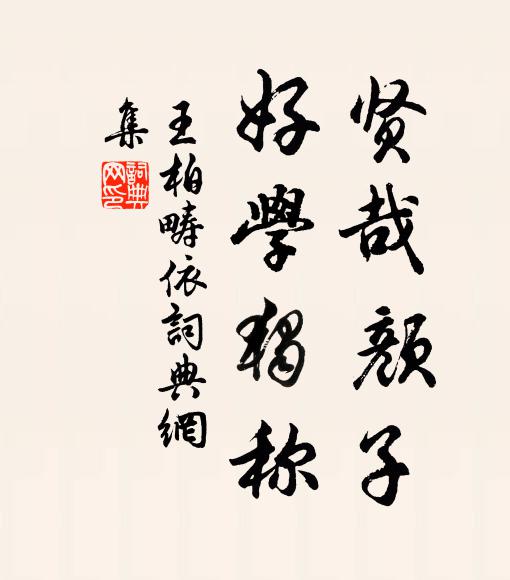 贤哉颜子
好學独称
王柏畴依词典網
集
詞典
网印